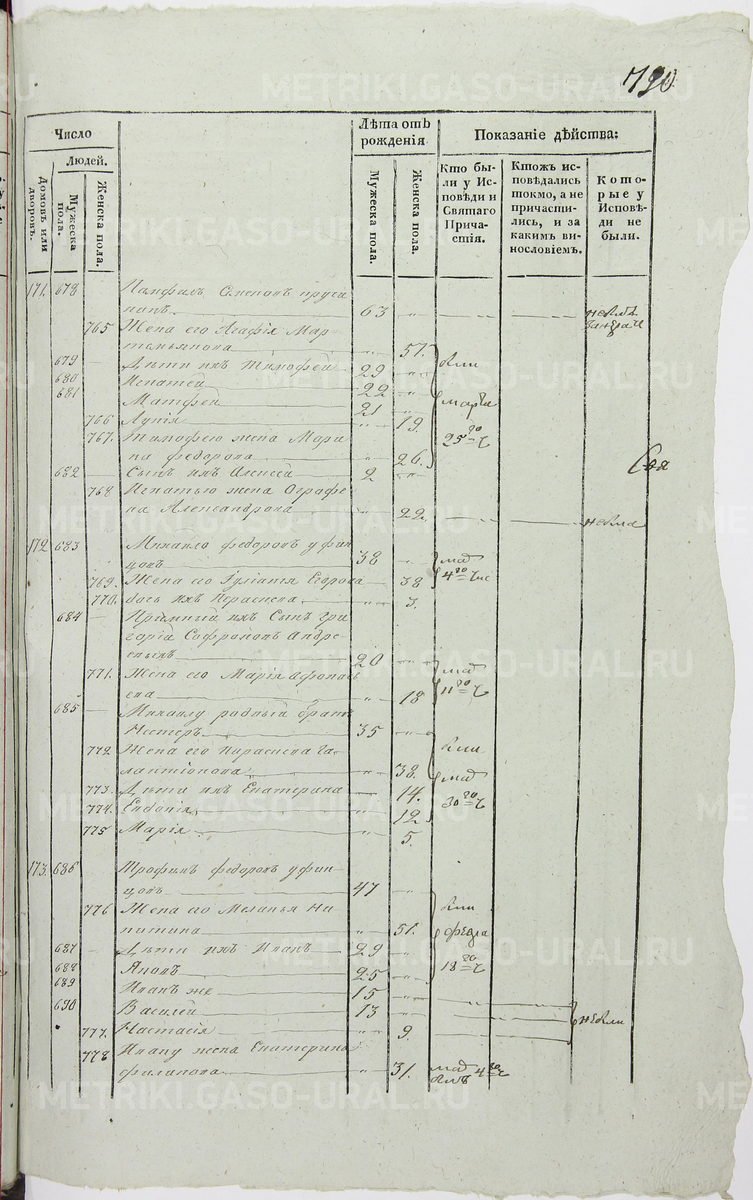 790
Число
Лѣта отъ рожденія
Показаніе дѣйства:
Людей.
Домовъ или дворовъ.
Мужеска пола.
Женска пола.
Мужеска пола.
Женска пола.
Кто бы-
ли у Ис-
повѣди и
Святаго
Прича-
стія.
Ктожъ ис-
повѣдались
токмо, а не
причасти-
лись, и за
какимъ ви-
нословіемъ.
Кото-
рые у
Исповѣ-
ди не
были.
171. 678 Памфилъ Семеновъ
63
765 Жена его Агафія Мар-
темьянова 51.
679 Дѣти ихъ Тимофей 29
680 Игнатей 22
681 Матфей 21
марта
766 Лукія 19.
25
767. Тимофею жена Мари-
на Федорова 26.
682 Сынъ ихъ Алексей 2
768 Игнатью жена
Александрова 22.
172 683 Михайло Федоровъ
38
маія
769. Жена его Іуліанія Егорова 38
4
770. дочь ихъ Параскева 3.
684 Пріемный ихъ Сынъ Гри-
горій Софроновъ Андре-
20
маія
771. Жена его Марія Афонась-
ева 18
11
685 Михаилу родный братъ
Нестеръ 35
772 Жена его Параскева Га-
лактіонова 38.
маія
773. Дѣти ихъ Екатерина 14.
30
774. Евдокія 12
775 Марія 5.
173. 686 Трофимъ Федоровъ
47
776 Жена его Меланья Ни-
китина 51.
февра
687 Дѣти ихъ Иванъ 29
18
688 Яковъ 25
689 Иванъ же 15
690 Василей 13
небыли
777. Настасія 9.
778 Ивану жена Екатерина
Филипова 31. маія 4
METRIKI.GASO-URAL.RU